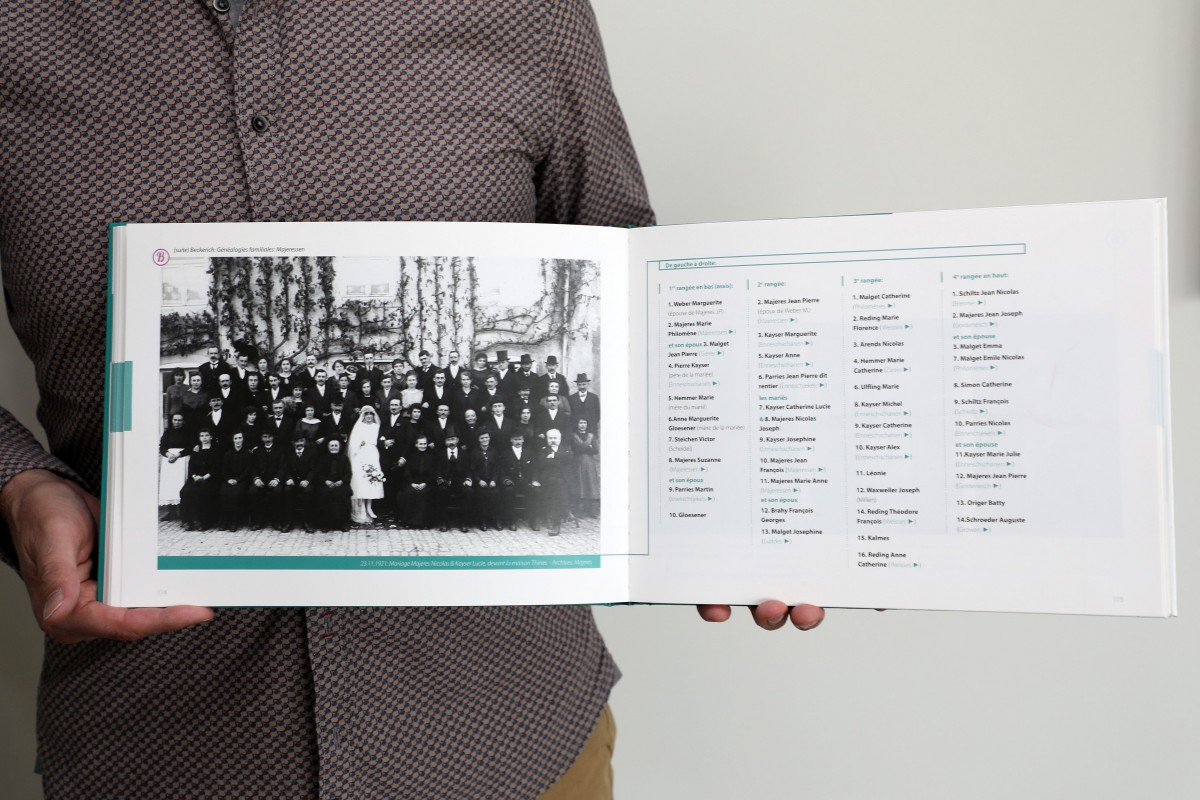 B
(suite) Beckerich: Généalogies familiales: Majeressen
23.11.1921: Mariage Majeres Nicolas & Kayser Lucie, devant la maison - Archives Majeres
De gauche à droite:
1re rangée en bas (assis):
1. Weber Marguerite
(épouse de Majeres JP)
2. Majeres Marie
Philomène (Majeressen ►)
et son époux 3. Malget
Jean Pierre
4. Pierre Kayser
(père de la mariée)
(Enneschschanen ►)
5. Hemmer Marie
(mère du marié)
6.Anne Marguerite
Gloesener (mère de la mariée)
7. Steichen Victor
8. Majeres Suzanne
(Majeressen ►)
et son époux
9. Parries Martin
10. Gloesener
2e rangée:
2. Majeres Jean Pierre
(époux de Weber M.)
(Majeressen ►)
3. Kayser Marguerite
(Enneschschanen ►)
5. Kayser Anne
(Enneschschanen ►)
6. Parries Jean Pierre dit
rentier
les mariés
7. Kayser Catherine Lucie
& 8. Majeres Nicolas
Joseph
9. Kayser Josephine
(Enneschschanen ►)
10. Majeres Jean
François (Majeressen ►)
11. Majeres Marie Anne
(Majeressen ►)
et son époux
12. Brahy François
Georges
13. Malget Josephine
3e rangée:
1. Malget Catherine
2. Reding Marie
Florence
3. Arends Nicolas
4. Hemmer Marie
Catherine
6. Ulfling Marie
8. Kayser Michel
(Enneschschanen ►)
9. Kayser Catherine
(Enneschschanen ►)
10. Kayser Alex
(Enneschschanen ►)
11. Léonie
12. Waxweiler Joseph
14. Reding Théodore
François
15. Kalmes
16. Reding Anne
Catherine
4e rangée en haut:
1. Schiltz Jean Nicolas
2. Majeres Jean Joseph
et son épouse
3. Malget Emma
7. Malget Emile Nicolas
8. Simon Catherine
9. Schiltz François
10. Parries Nicolas
et son épouse
11.Kayser Marie Julie
(Enneschschanen ►)
12. Majeres Jean Pierre
13. Origer Batty
14.Schroeder Auguste